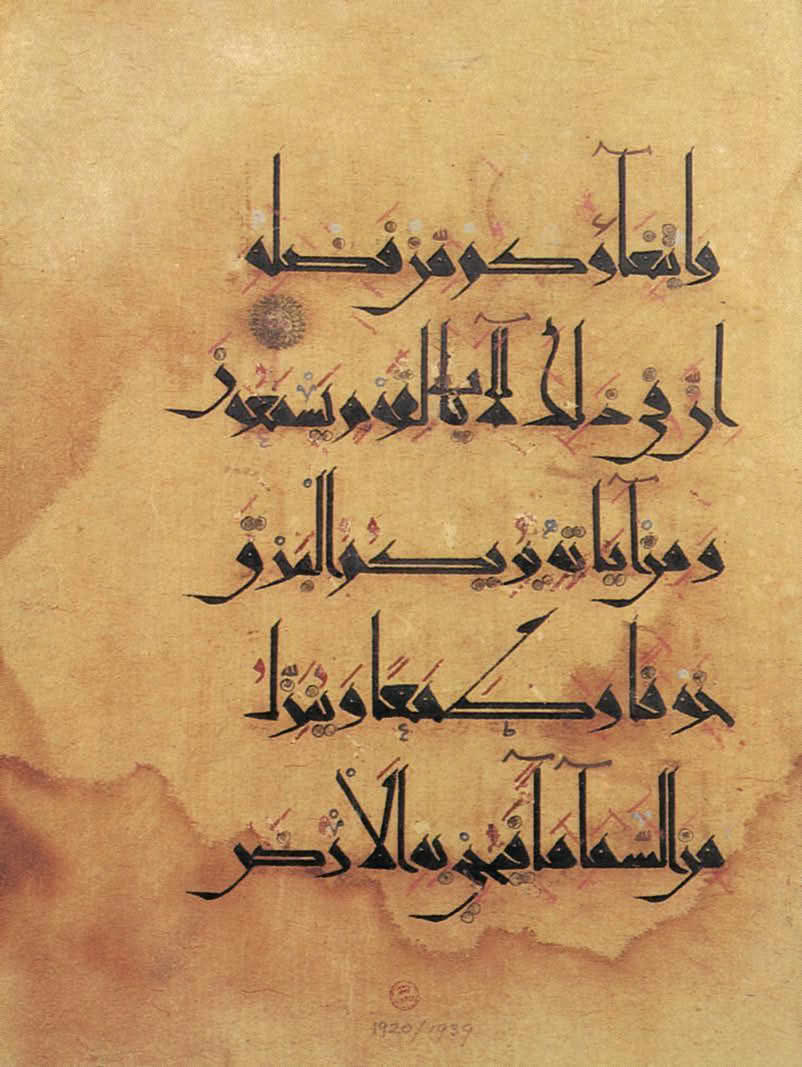 وابتغآؤكم من فضله
ان في ذلك لآيات لقوم يسمعون
ومن آياته يريكم البرق
خوفا وطمعا وينزل
من السمآء مآء فيحيي به الأرض
1920/1939